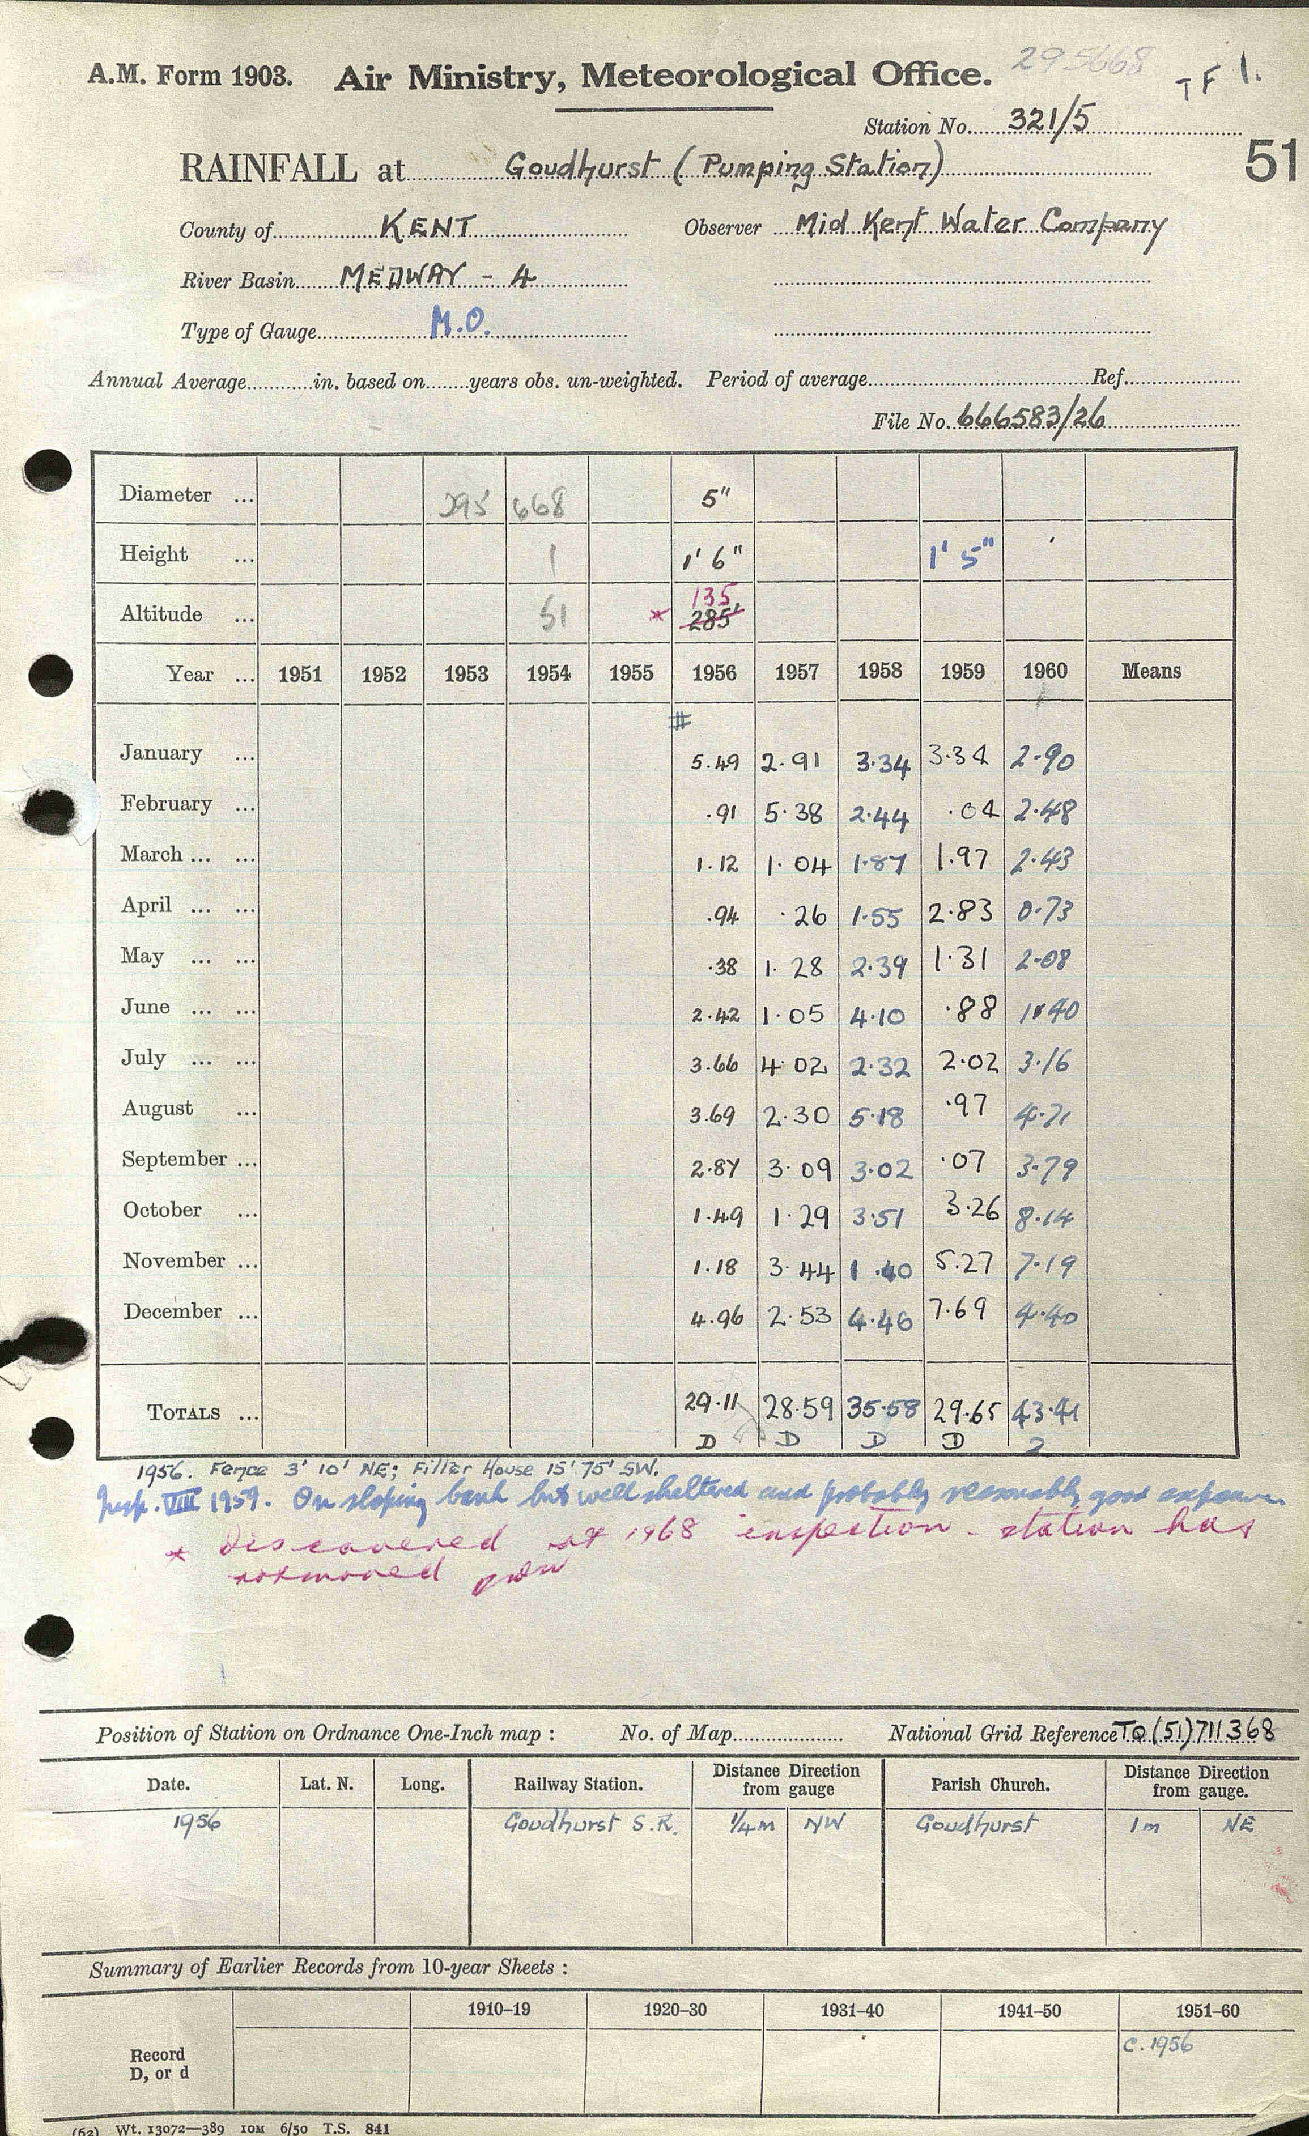 295668
A.M. Form 1903. Air Ministry, Meteorological Office. T F 1.
Station No. 321/5
RAINFALL at Goudhurst (Pumping Station) 51
County of KENT Observer Mid Kent Water Company
River Basin MEDWAY - 4
Type of Gauge M.O.
Annual Average in. based on years obs. un-weighted. Period of average Ref.
File No. 666583/26
Diameter ... 295 668 5"
Height ... 1 1' 6" 1' 5"
Altitude ... 51 * 135 285'
Year ... 1951 1952 1953 1954 1955 1956 1957 1958 1959 1960 Means
#
January ... 5.49 2.91 3.34 3.34 2.90
February ... .91 5.38 2.44 .04 2.48
March ... ... 1.12 1.04 1.87 1.97 2.43
April ... ... .94 .26 1.55 2.83 0.73
May ... ... .38 1.28 2.39 1.31 2.08
June ... ... 2.42 1.05 4.10 .88 1.40
July ... ... 3.66 4.02 2.32 2.02 3.16
August ... 3.69 2.30 5.18 .97 4.71
September ... 2.87 3.09 3.02 .07 3.79
October ... 1.49 1.29 3.51 3.26 8.14
November ... 1.18 3.44 1.40 5.27 7.19
December ... 4.96 2.53 4.46 7.69 4.40
TOTALS ... 29.11 28.59 35.58 29.65 43.41
D D D D 2
1956. Fence 3' 10' NE; Filter House 15' 75' SW.
Insp. VIII 1959. On sloping bank but well sheltered and probably reasonably good exposure
* Discovered at 1968 inspection - station has
not moved
Position of Station on Ordnance One-Inch map : No. of Map National Grid Reference TQ(51)711368
Date. Lat. N. Long. Railway Station. Distance Direction from gauge Parish Church. Distance Direction from gauge.
1956 Goudhurst S.R. 1/4m NW Goudhurst 1m NE
Summary of Earlier Records from 10-year Sheets :
1910–19 1920–30 1931–40 1941–50 1951–60
Record D, or d C. 1956
(62) Wt. 13072—389 10M 6/50 T.S. 841